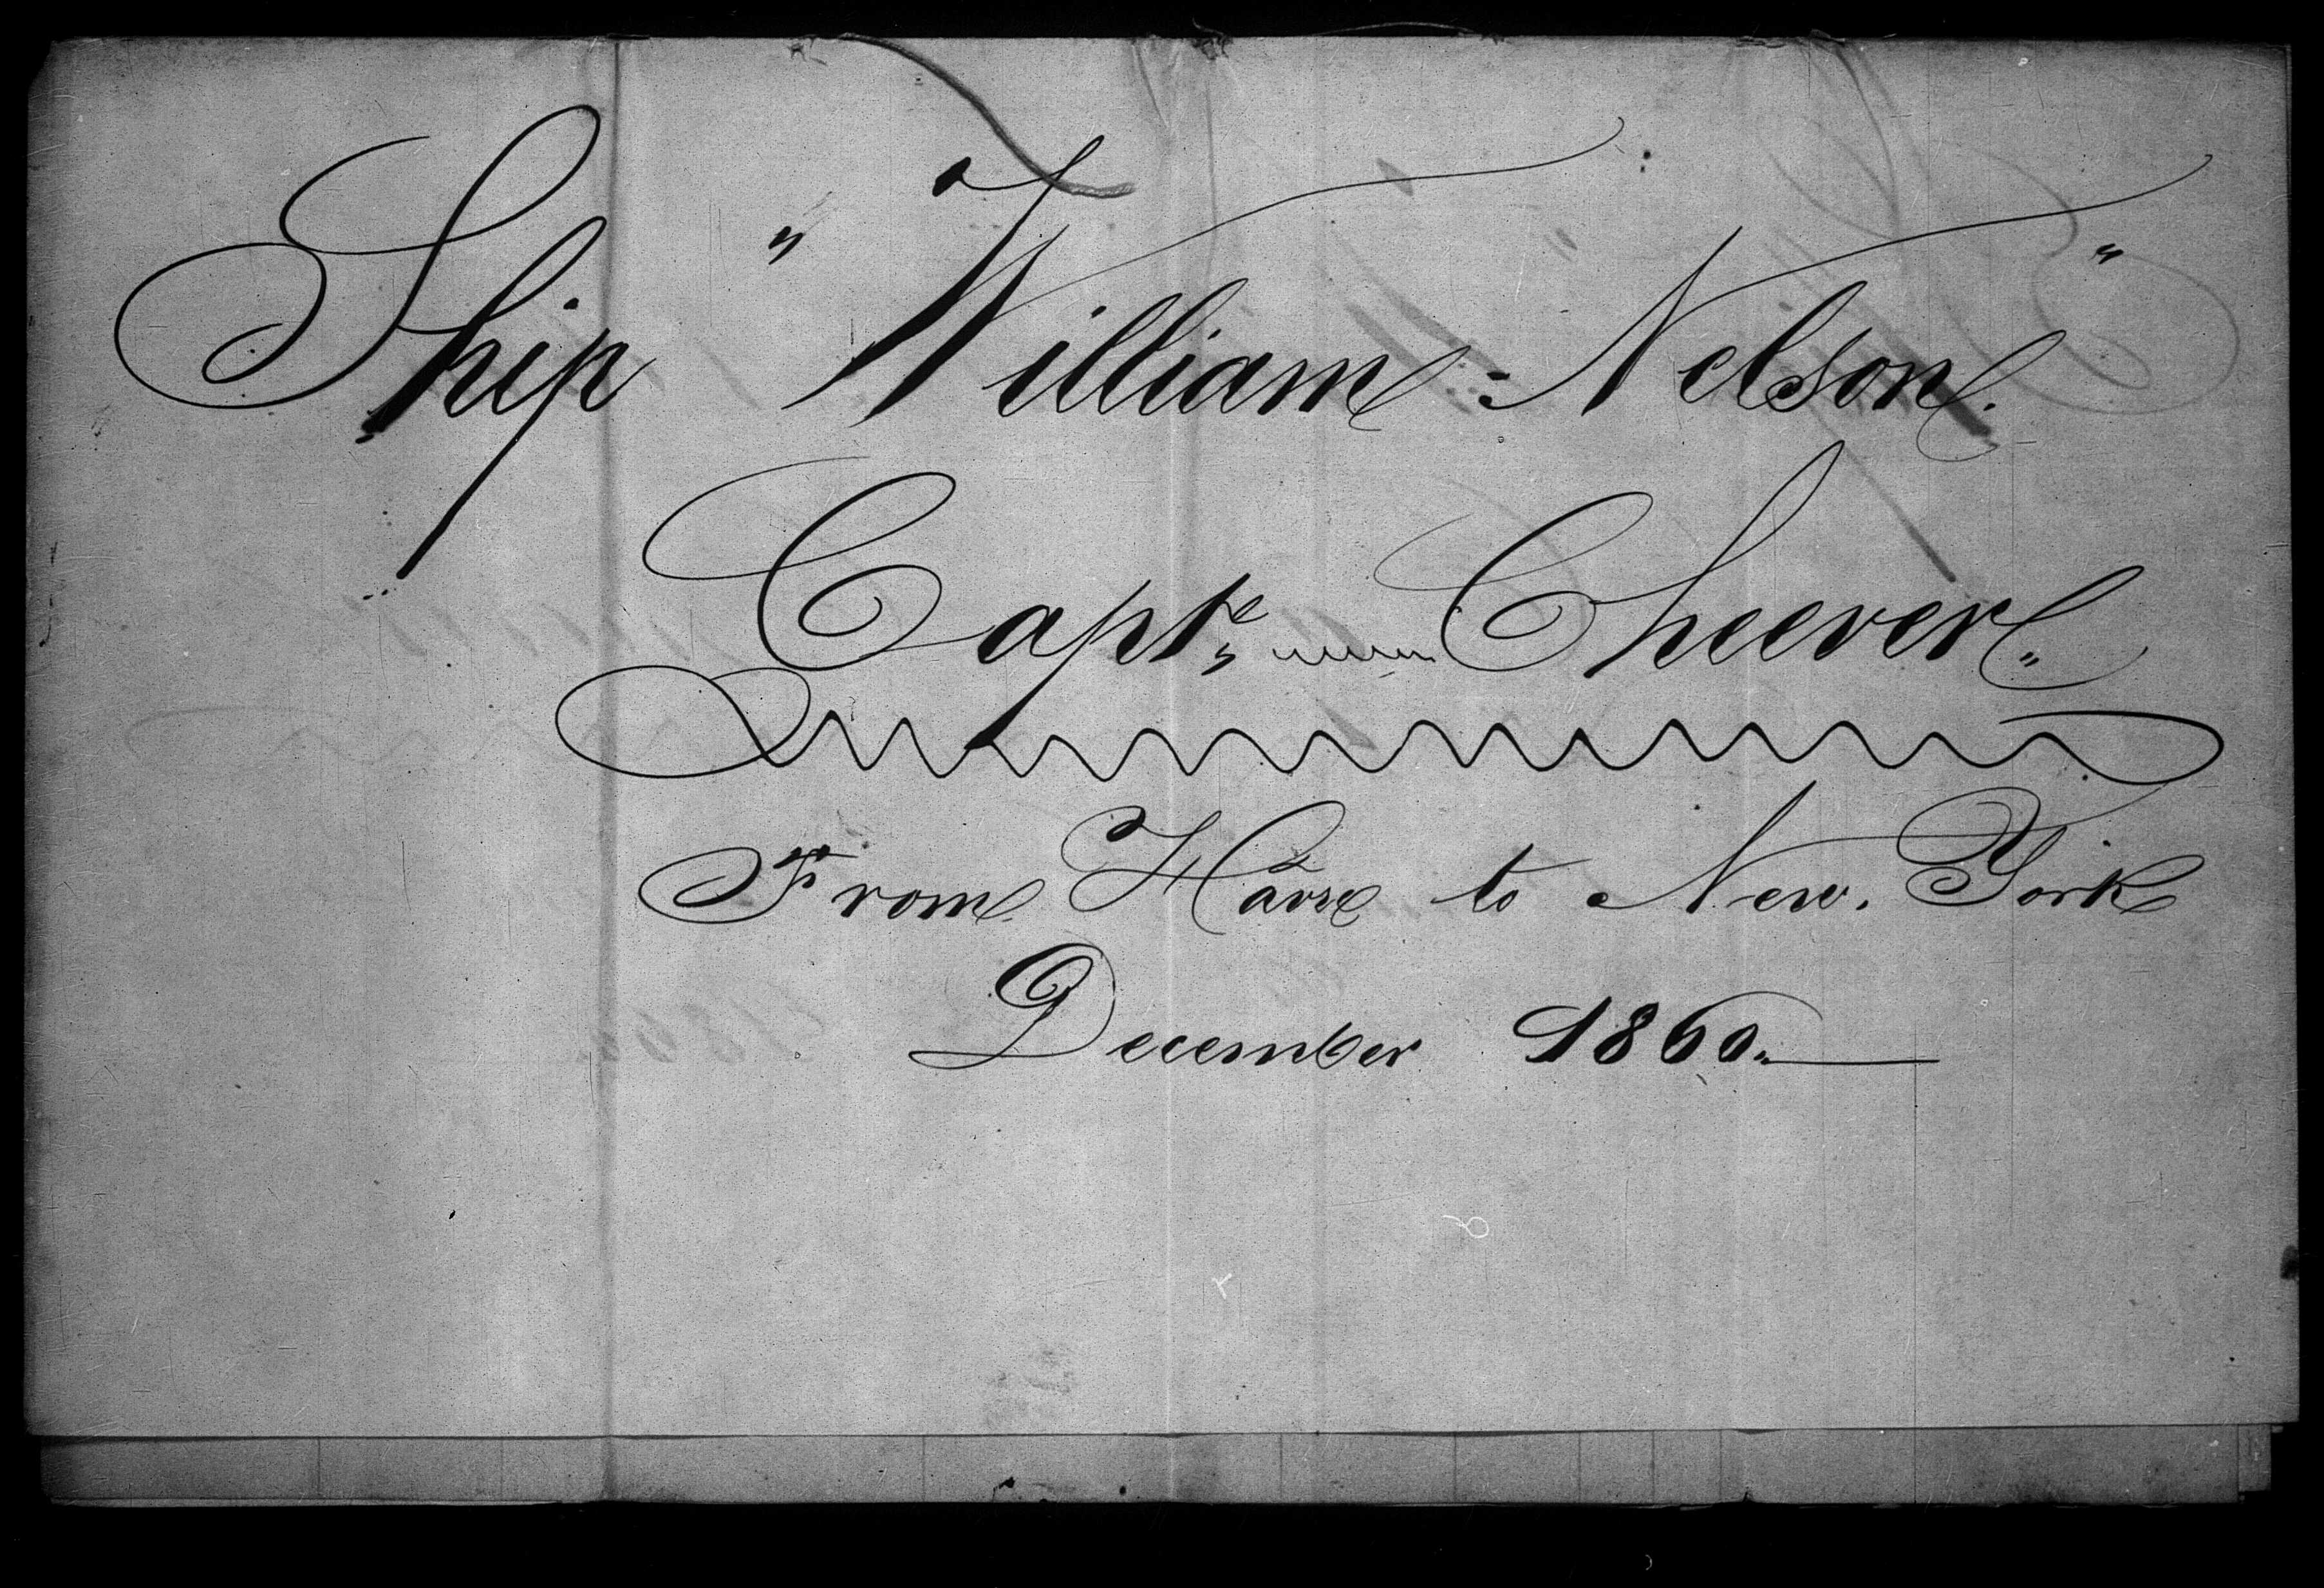 Ship "William-Nelson."
Capte Cheever.
From Hâvre to New. York
December 1860.